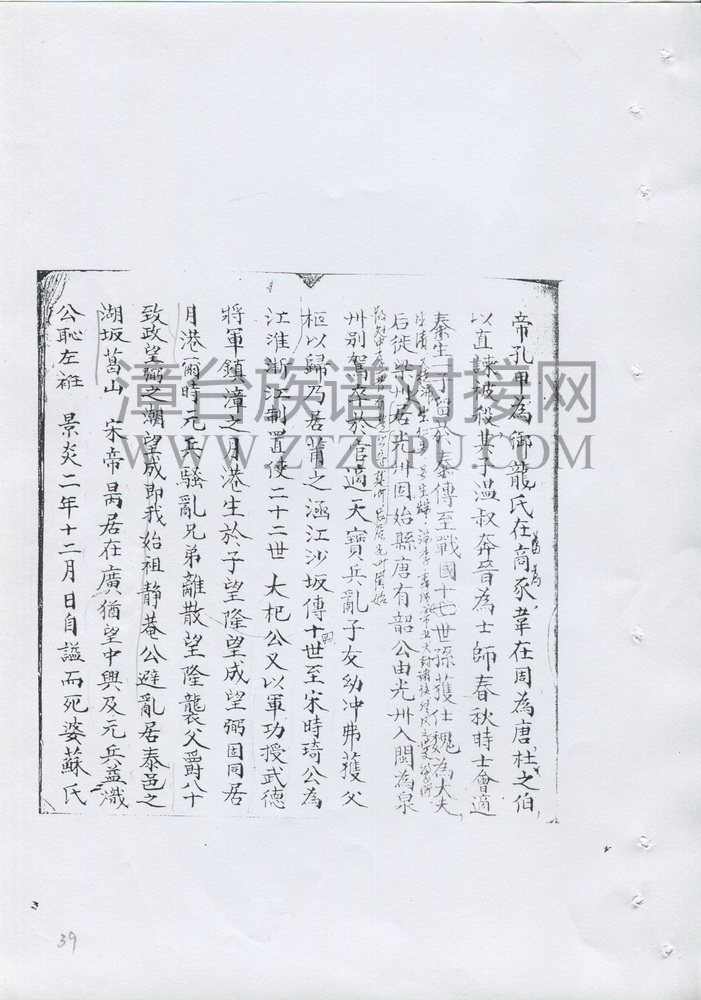 帝孔甲為御龍氏在商豕韋在周為唐杜之伯
以直諫被殺其子温叔奔晉為士師春秋時士會適
秦生子留於秦傳至戰國十七世孫獲仕魏為大夫
后徙梁州居光州固始縣唐有韶公由光州入閩為泉
州別駕卒於官適天寶兵亂子友幼冲弗獲父
柩以歸乃居莆之涵江沙坂傳十世至宋時琦公為
江淮浙江制置使二十二世大杞公又以軍功授武德
將軍鎮漳之月港生於子望隆望成望弼因同居
月港爾時元兵騷亂兄弟離散望隆襲父爵八十
致政望弼之潮望成即我始祖静菴公避亂居泰邑之
湖坂葛山 宋帝昺居在廣猶望中興及元兵益熾
公恥左袵 景炎二年十二月日自謚而死婆蘇氏
漳台族谱对接网
WWW.ZTZUPU.COM
39